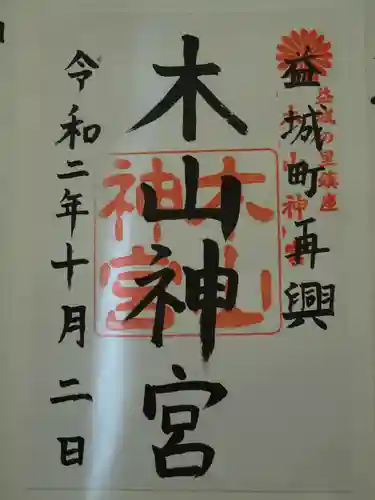 益城町再興
益城の里鎮座
木山神宮
木山神宮
令和二年十月二日